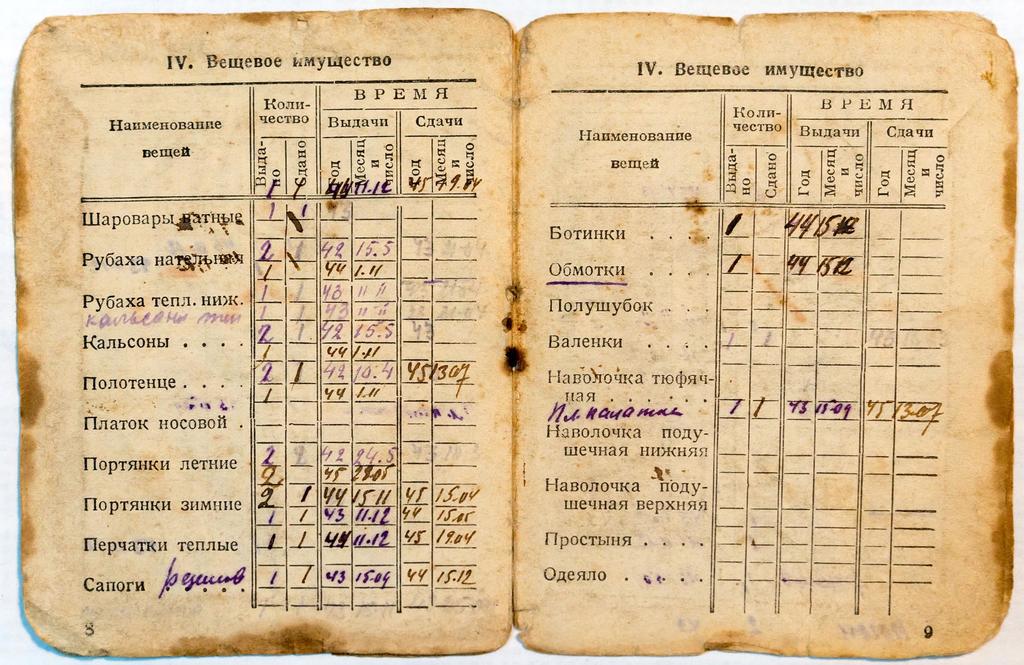 IV. Вещевое имущество
Наименование вещей
Количество
ВРЕМЯ
Выдачи
Сдачи
Выдано
Сдано
Год
Месяц и число
Год
Месяц и число
1 44 11.12 45 19.04
Шаровары ватные 1 1
Рубаха нательная 2 1 42 15.5
1 44 1.11
Рубаха тепл. ниж. 1 1 43 11 11
кальсоны теп 1 1 43 11 11
Кальсоны . . . . 2 1 42 15.5 43
1 44 1.11
Полотенце . . . . 2 1 42 10.4 45 13.07
1 44 1.11
Платок носовой .
Портянки летние 2 2 42 24.5
2 45
Портянки зимние 2 1 44 15.11 45 15.04
1 1 43 11.12 44 15.05
Перчатки теплые 1 1 44 11.12 45 19.04
Сапоги . . . . 1 1 43 15.09 44 15.12
8
IV. Вещевое имущество
Наименование вещей
Количество
ВРЕМЯ
Выдачи
Сдачи
Выдано
Сдано
Год
Месяц и число
Год
Месяц и число
Ботинки . . . . 1 44 15 12
Обмотки . . . . 1 44 15 12
Полушубок . . .
Валенки . . . . 1 1
Наволочка тюфяч-
ная . . . . . . .
Пл палатка 1 1 43 15.09 45 13.07
Наволочка поду-
шечная нижняя
Наволочка поду-
шечная верхняя
Простыня . . . .
Одеяло . . . . .
9